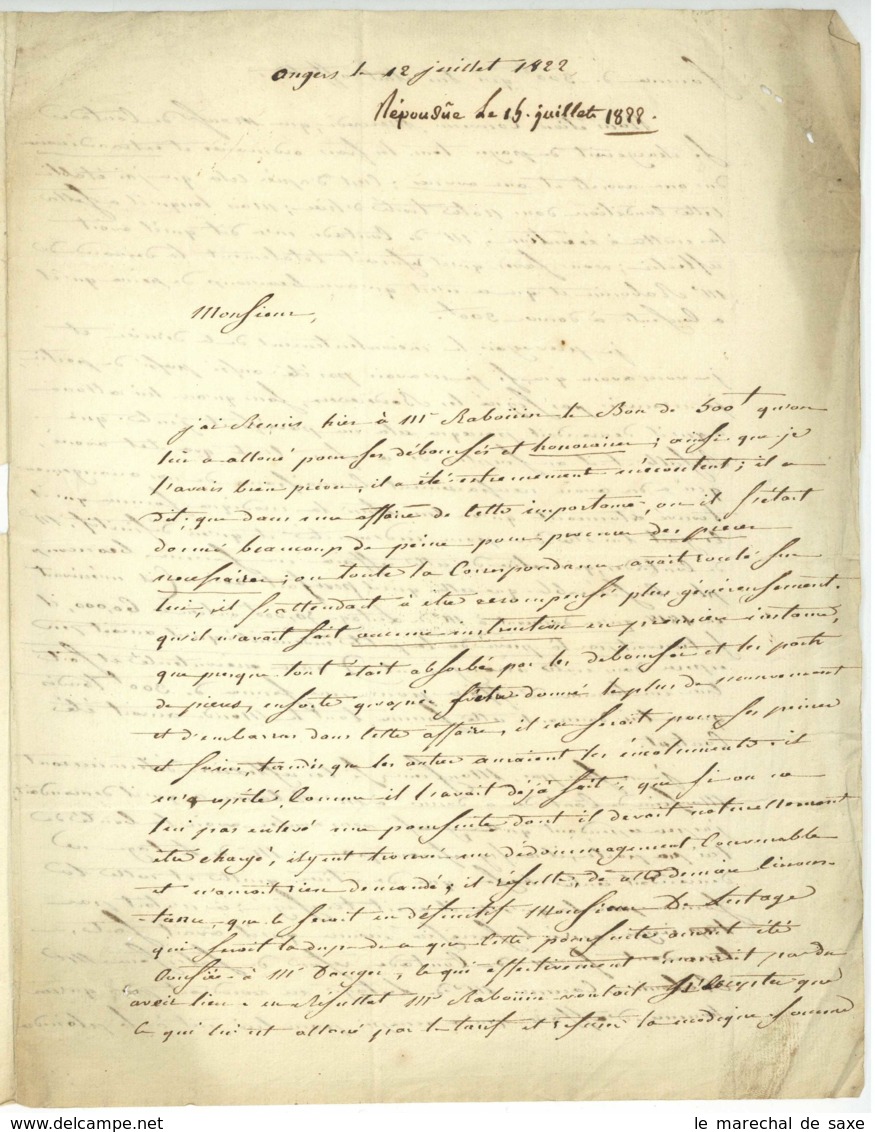 angers le 12 juillet 1822
Répondüe Le 15. juillet 1822.
Monsieur,
j'ai Remis hier à Mr Raboüin le Bon de 500f qu'on
lui a alloué pour ses déboursés et honoraires; ainsi que je
l'avais bien prévu, il a été extremement mécontent; il a
dit, que dans une affaire de cette importance, ou il s'etait
donné beaucoup de peine pour procurer des pieces
necessaires; ou toute la Correspondance avait roulé sur
lui, il s'attendait à être recompensé plus généreusement.
qu'il n'avait fait aucune instruction en premiere instance,
que presque tout était absorbé par les déboursés et les ports
de pieces, ensorte qu'après s'être donné le plus de mouvement
et d'embarras dans cette affaire, il en serait pour ses peines
et soins, tandis que les autres auraient les émoluments. il
m'a répété comme il l'avait déjà fait, que si on ne
lui pas enlevé une poursuite dont il devait naturellement
être chargé, il y eut trouvé un dédommagement Convenable
et n'aurait rien demandé; il résulte, de cette derniere Circons-
tance, que ce serait en définitif Monsieur De Lestage
qui serait la dupe de ce que cette poursuite aurait été
Confiée à Mr Dauges, ce qui effectivement n'aurait pas du
avoir lieu. en Résultat Mr Raboüin voulait s'en tenir que
ce qui lui est alloué par le tarif et refuser la modique somme
le marechal de saxe